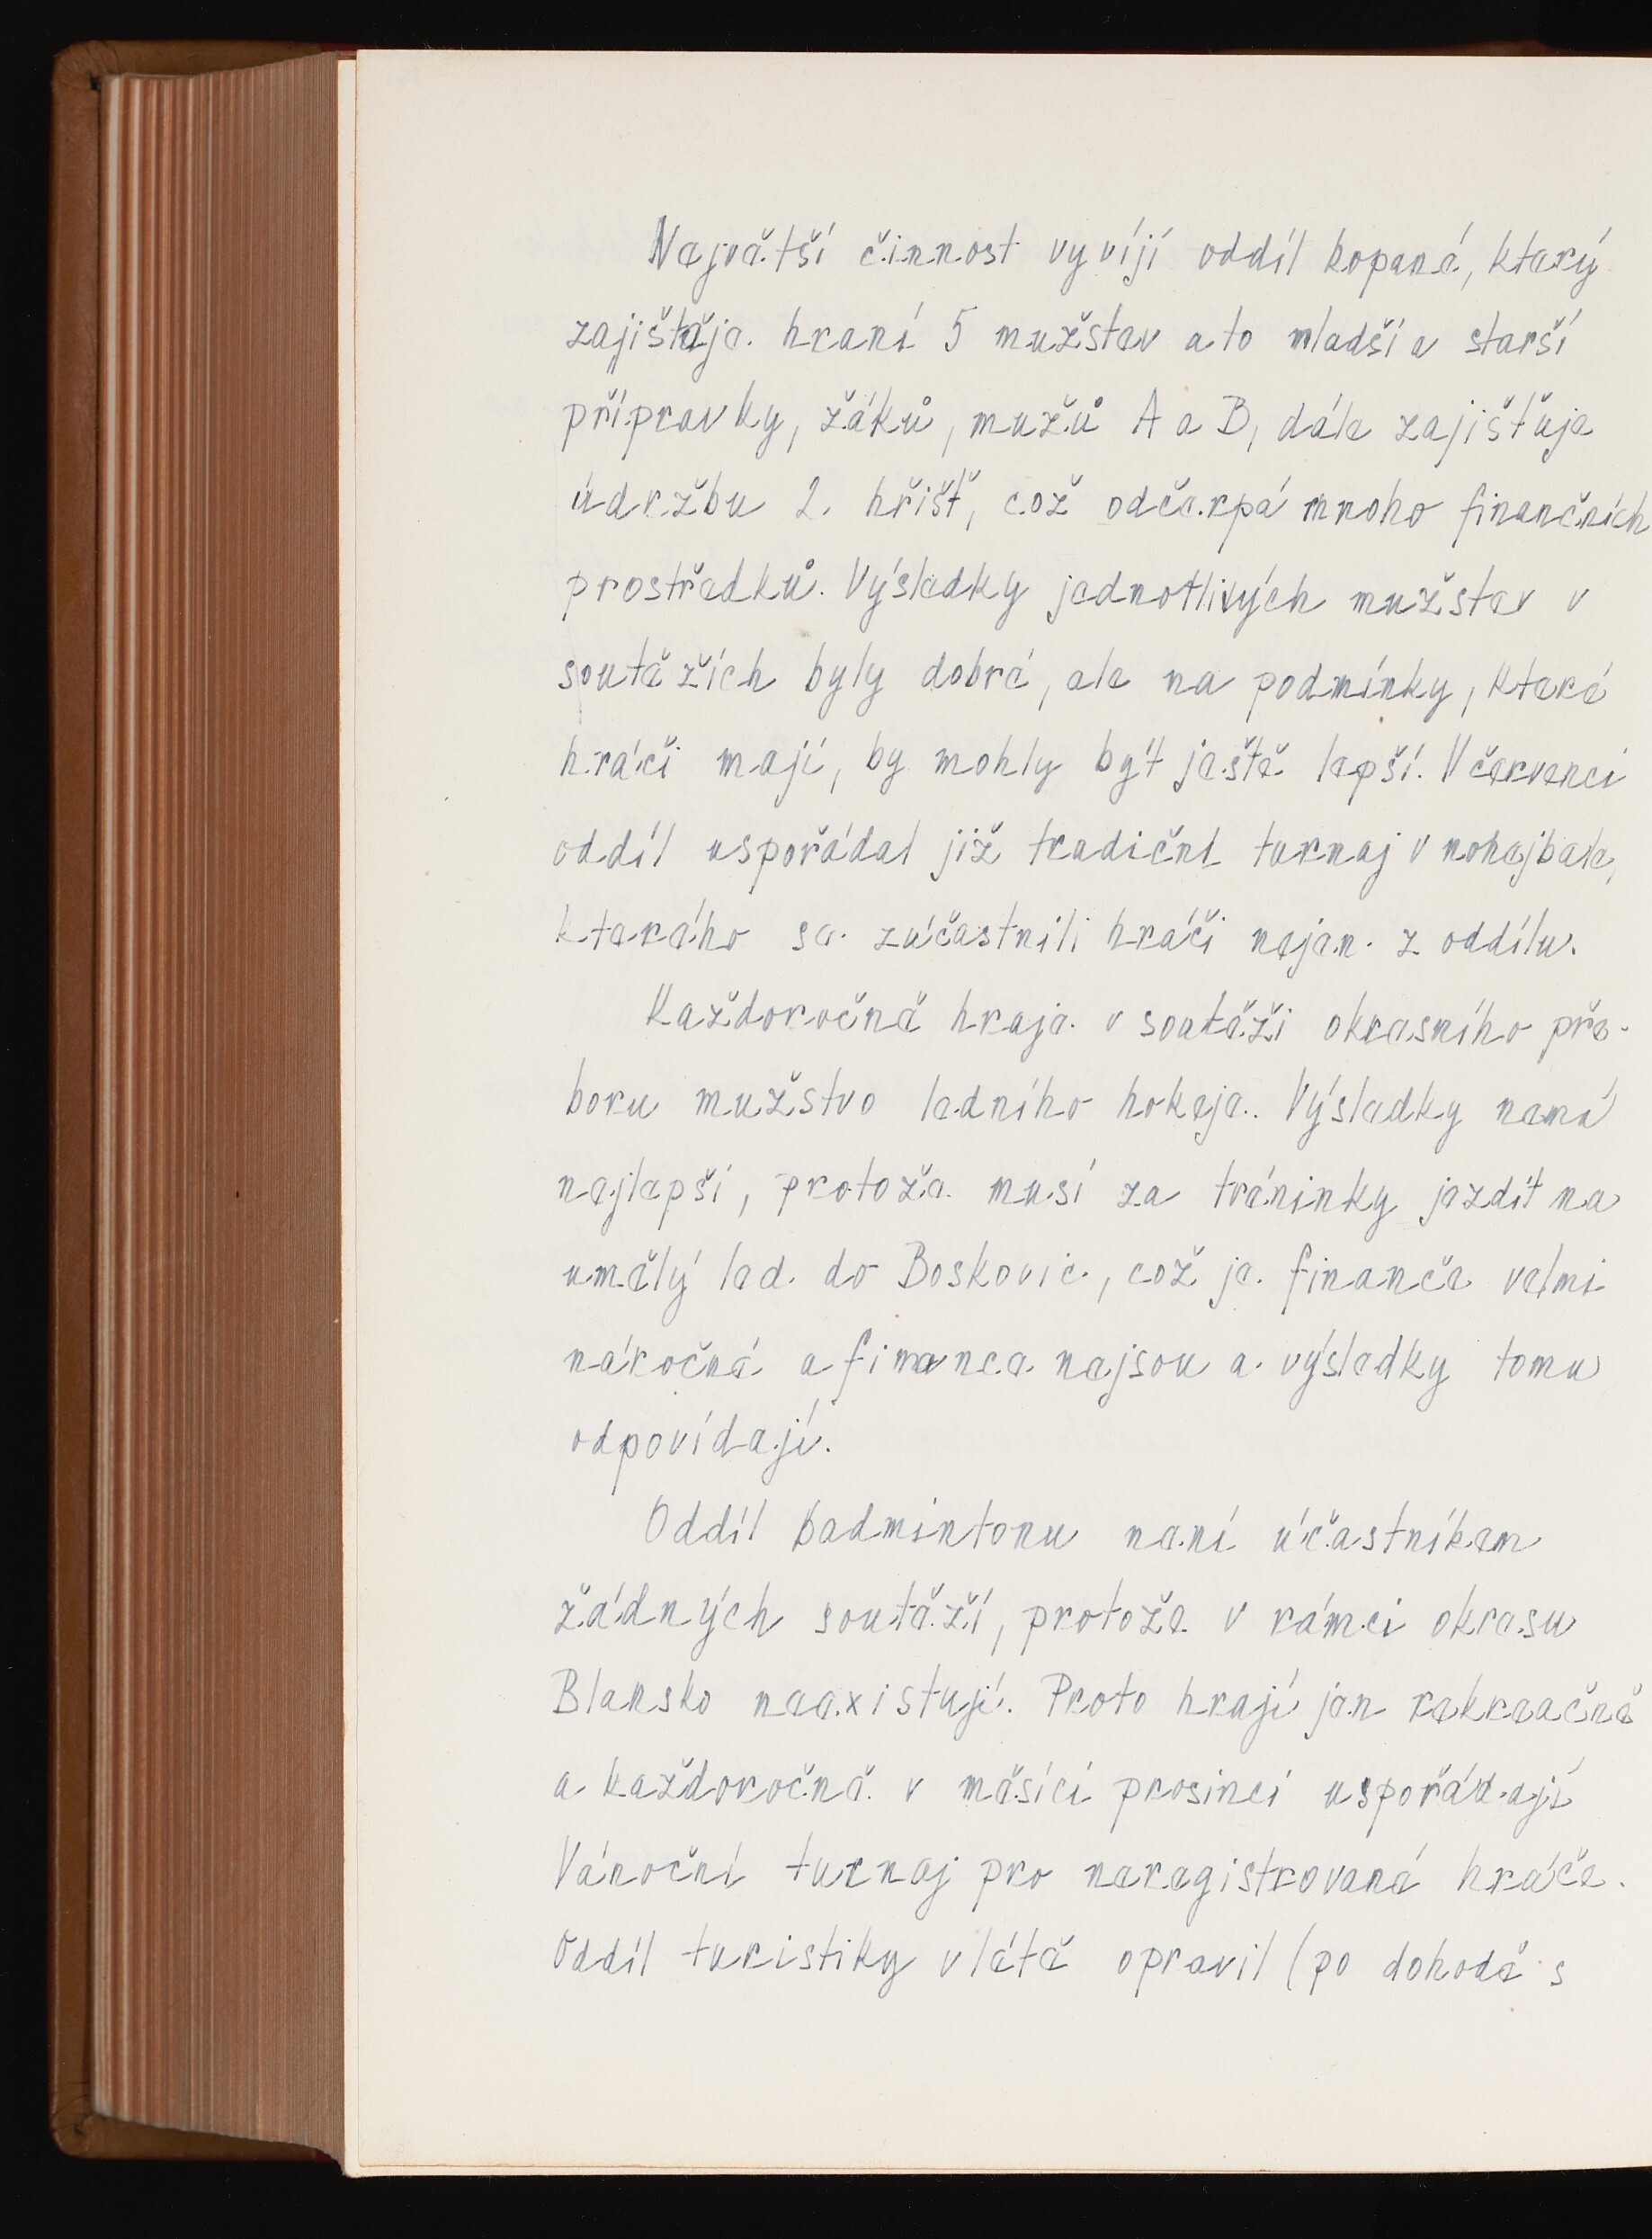 Největší činnost vyvíjí oddíl kopané, který
zajišťuje hraní 5 mužstev a to mladší a starší
přípravky, žáků, mužů A a B, dále zajišťuje
údržbu 2. hřišť, což odčerpá mnoho finančních
prostředků. Výsledky jednotlivých mužstev v
soutěžích byly dobré, ale na podmínky, které
hráči mají, by mohly být ještě lepší. V červenci
oddíl uspořádal již tradiční turnaj v nohejbale,
kterého se zúčastnili hráči nejen z oddílu.
Každoročně hraje v soutěži okresního pře-
boru mužstvo ledního hokeje. Výsledky nemá
nejlepší, protože musí za tréninky jezdit na
umělý led do Boskovic, což je finanče velmi
náročné a finance nejsou a výsledky tomu
odpovídají.
Oddíl badmintonu není účastníkem
žádných soutěží, protože v rámci okresu
Blansko neexistují. Proto hrají jen rekreačně
a každoročně v měsíci prosinci uspořádají
Vánoční turnaj pro neregistrované hráče.
Oddíl turistiky v létě opravil (po dohodě s